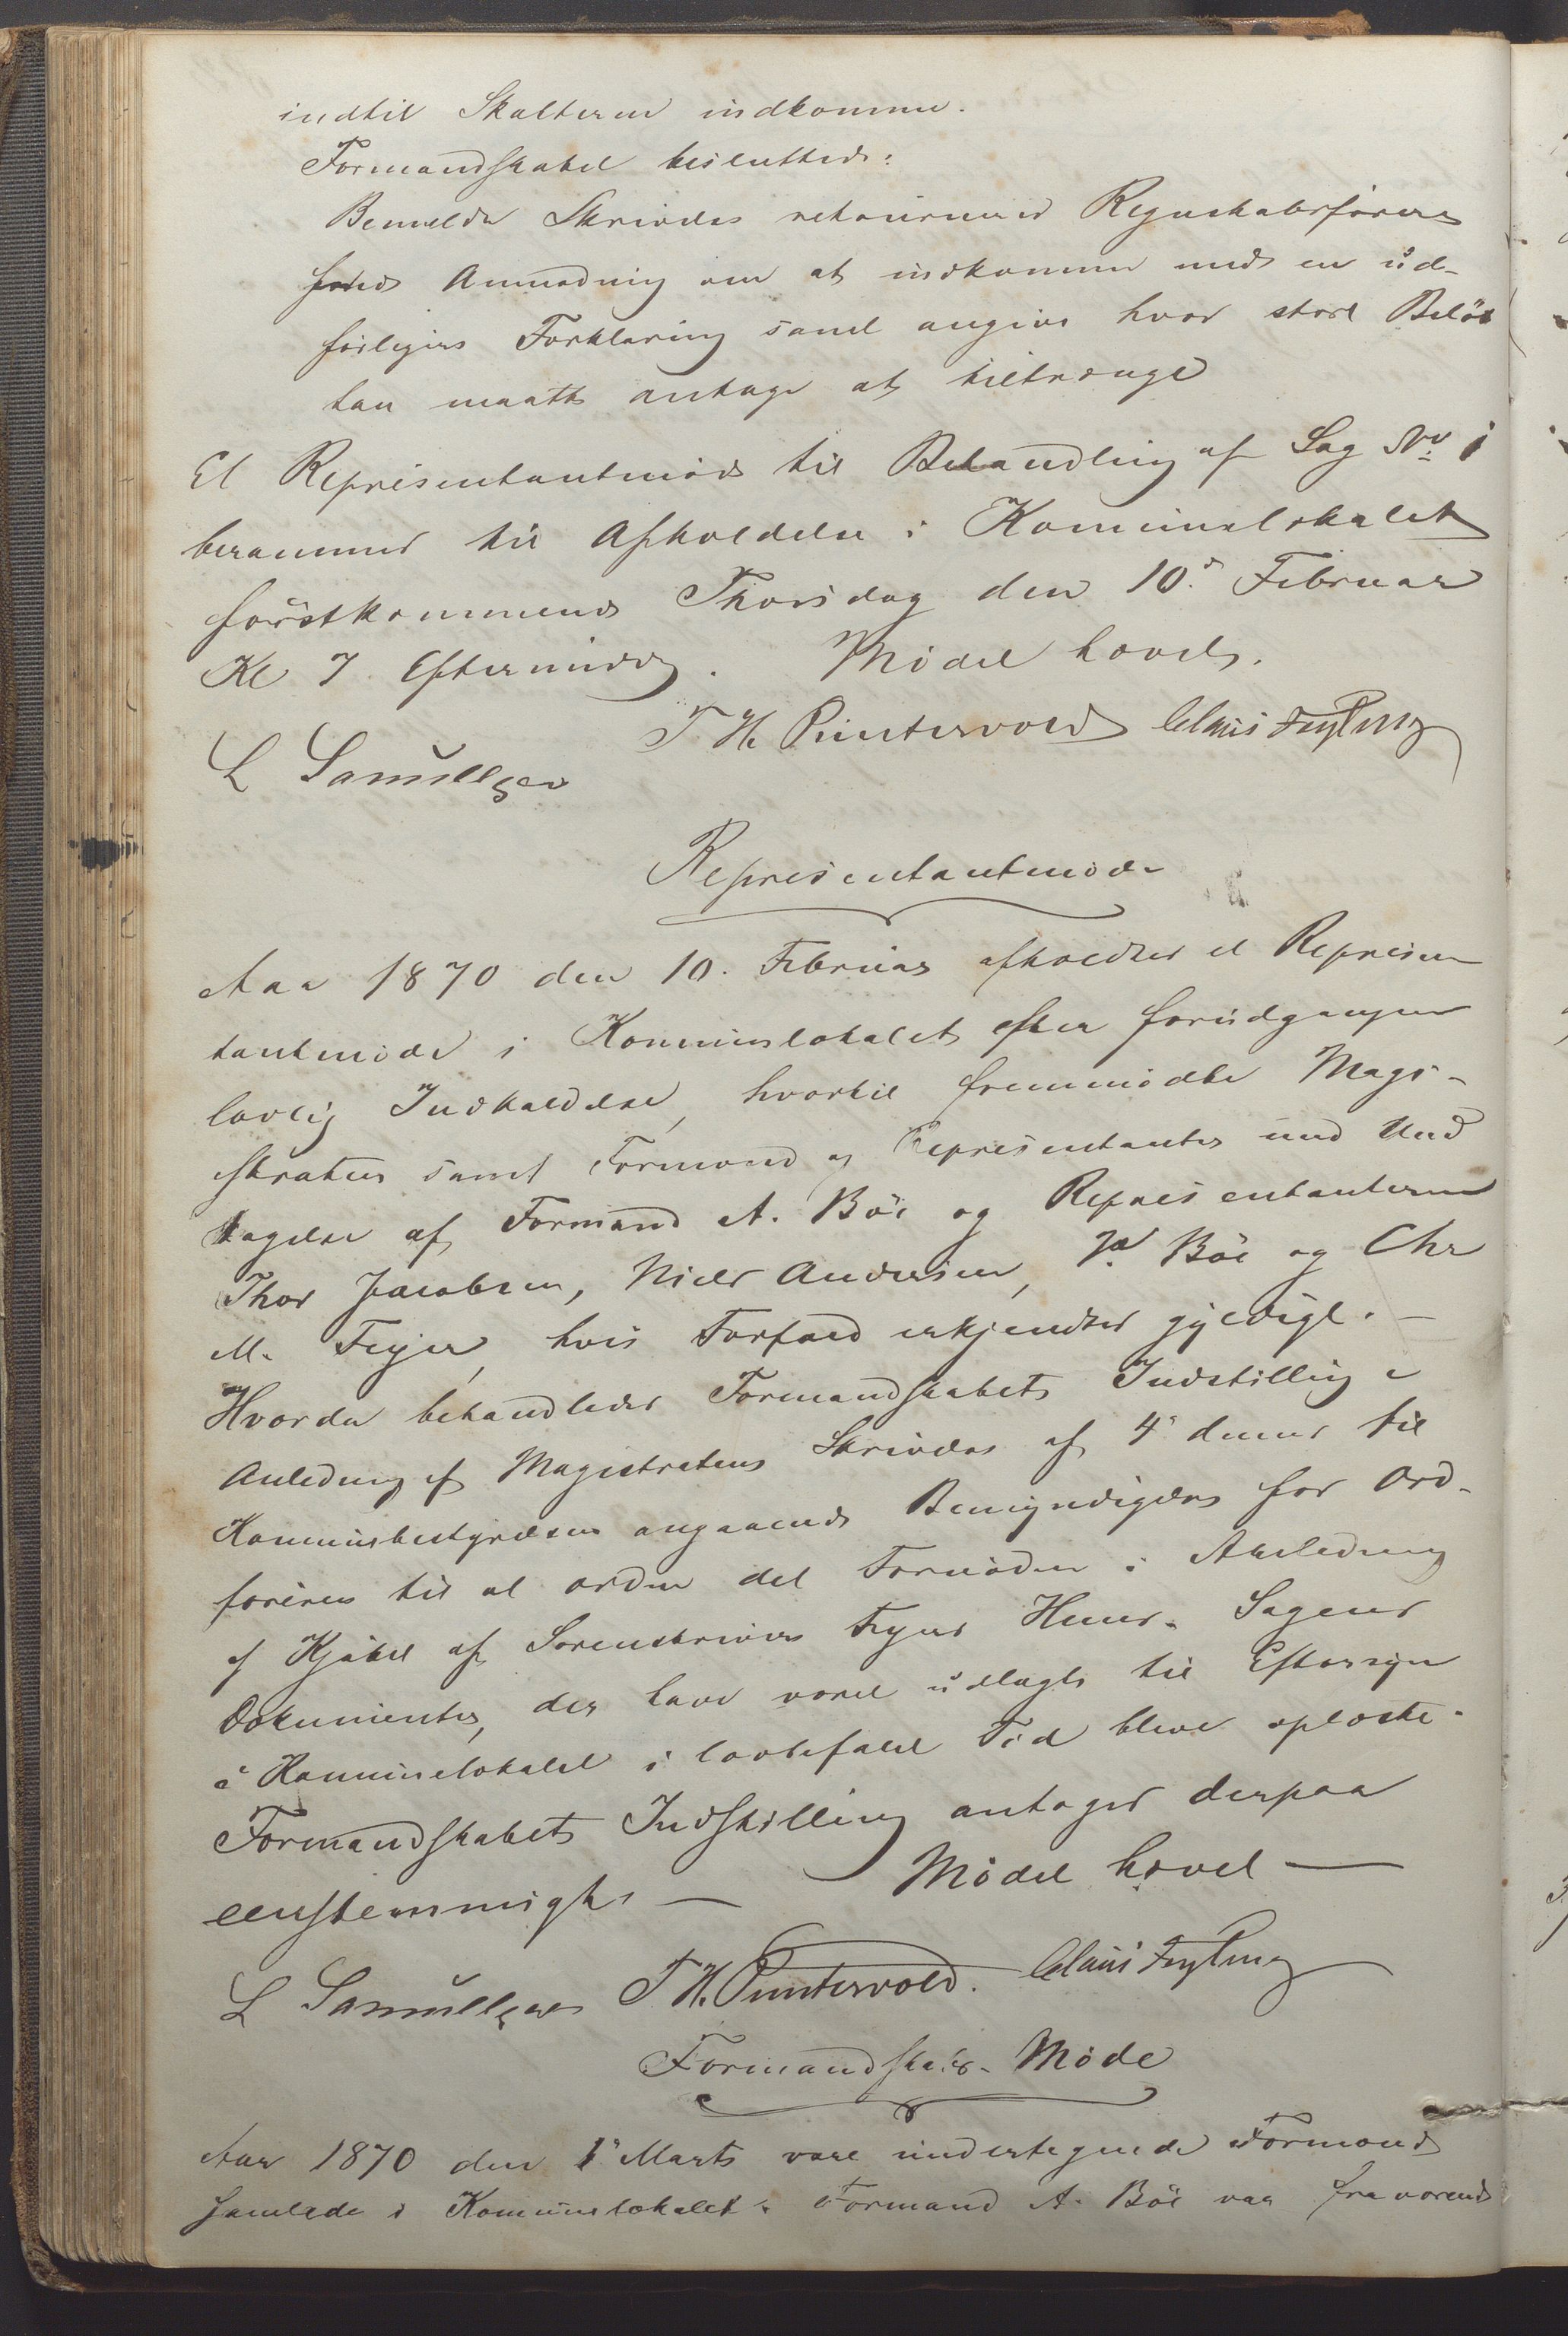 indtil Skatterne indkomme.
Formandskabet besluttede:
Bemeldte Skrivelse retourneres Regnskabsføreren
med Anmodning om at indkomme med en ud-
førligere Forklaring samt angive hvor stort Beløb
han maatte antage at tiltrænge
Et Representantmøde til Behandling af Sag No 1
berammes til Afholdelse i Kommunelokalet
førstkommende Thorsdag den 10de Februar
Kl 7 Eftermiddag. Mødet hævet.
L Samuelsen T H Puntervold Claus Feyling
Representantmøde
Aar 1870 den 10. Februar afholdtes et Represen
tantmøde i Kommunelokalet efter forudgangen
lovlig Indkaldelse, hvortil fremmødte Magi-
straten samt Formænd og Representanter med Und
tagelse af Formand A. Böe og Representanterne
Thor Jacobsen, Niels Andersen, P. Böe og Chr
M. Feyer, hvis Forfald erkjendtes gyldigt. -
Hvorda behandledes Formandskabets Indstilling i
Anledning af Magistratens Skrivelse af 4de dennes til
Kommunebestyrelsen angaaende Bemyndigelse for Ord-
føreren til at ordne det Fornødne i Anledning
af Kjøbet af Sorenskriver Feyers Huus. Sagens
Dokumenter, der have været udlagte til Eftersyn
i Kommunelokalet i lovbefalet Tid bleve oplæste.
Formandskabets Indstilling antoges derpaa
eenstemmigt. - Mødet hævet -
L Samuelsen T H. Puntervold. Claus Feyling
Formandskabs-Møde
Aar 1870 den 1ste Marts vare undertegnede Formænd
samlede i Kommunelokalet. Formand A. Böe var fraværende